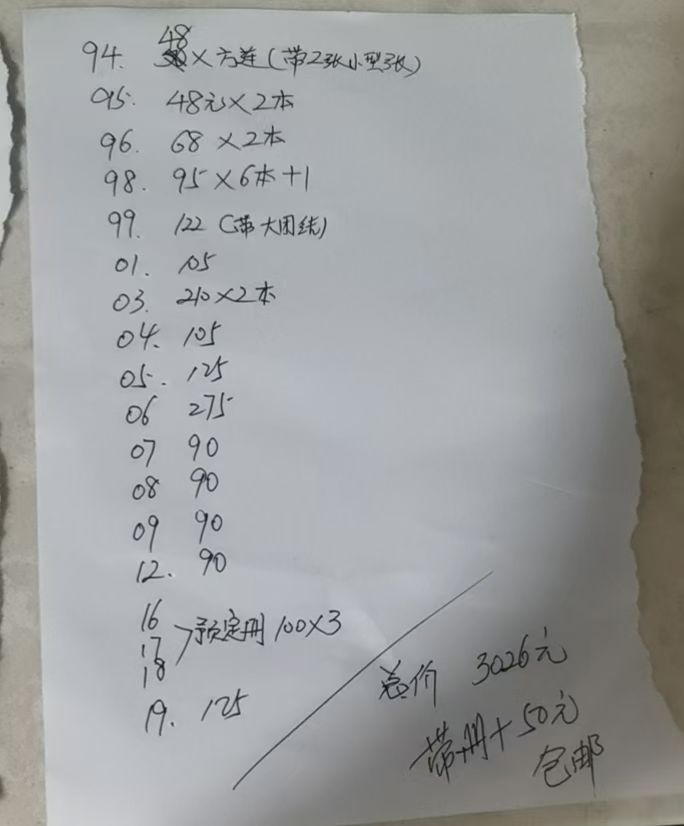 94. 48×方连(带2张小型张)
95. 48元×2本
96. 68×2本
98. 95×6本+1
99. 122(带大团结)
01. 105
03. 210×2本
04. 105
05. 125
06 275
07 90
08 90
09 90
12. 90
16
17 >预定册100×3
18
19. 125
总价 3026元
带册+50元
包邮